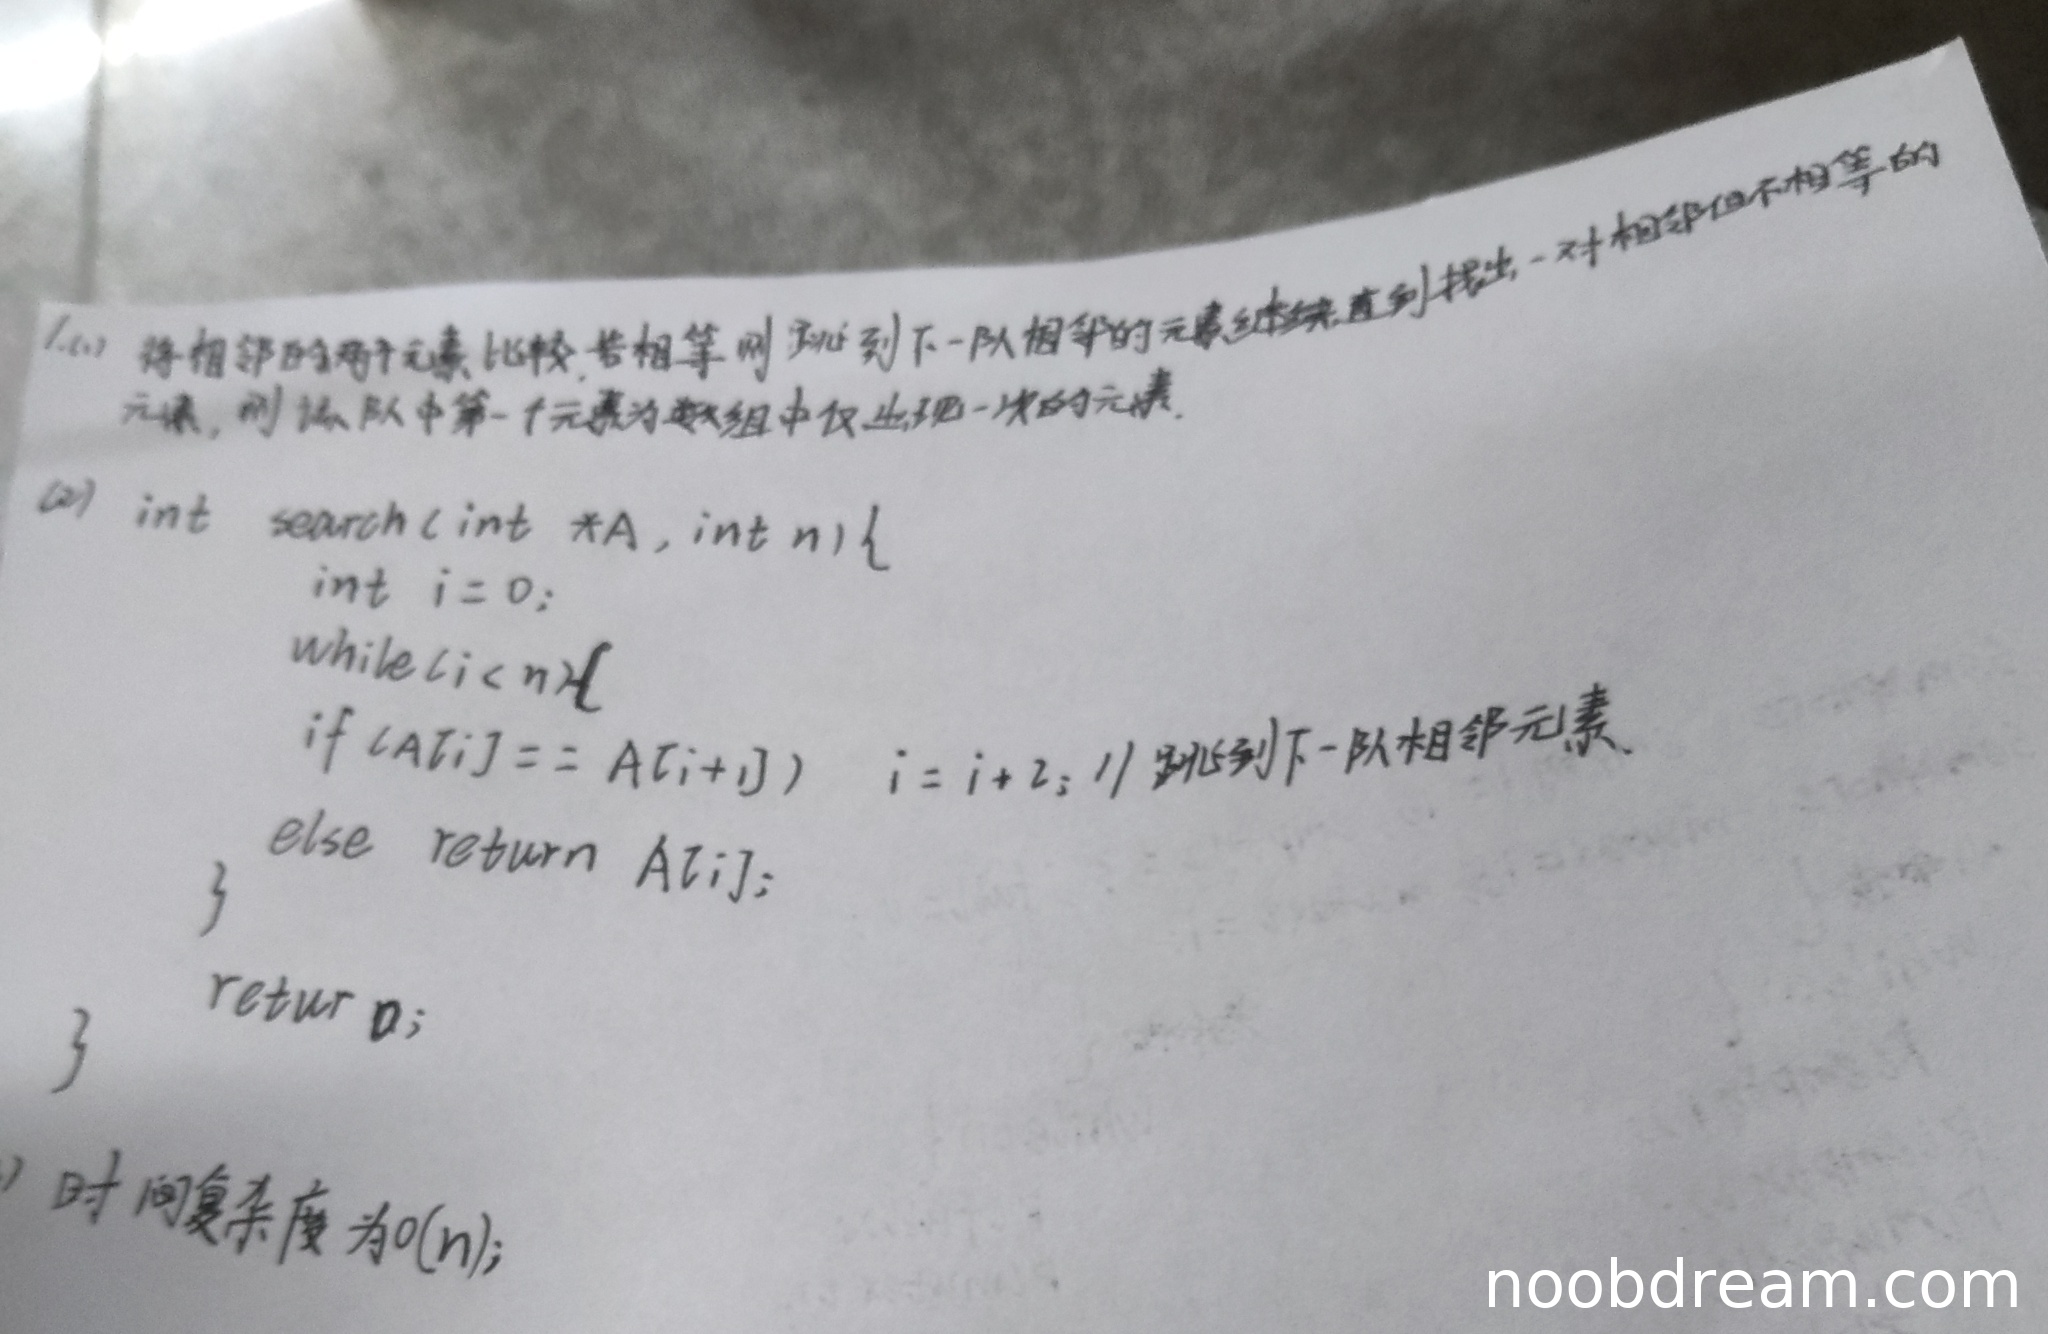 1.(1) 将相邻的两个元素比较,若相等则跳到下一队相邻的元素继续,直到找出一对相邻但不相等的
元素,则该队中第一个元素为数组中仅出现一次的元素.
(2) int search(int *A, int n){
int i=0;
while(i<n){
if(A[i]==A[i+1]) i=i+2; //跳到下一队相邻元素.
else return A[i];
}
retur 0;
}
) 时间复杂度为O(n);
noobdream.com